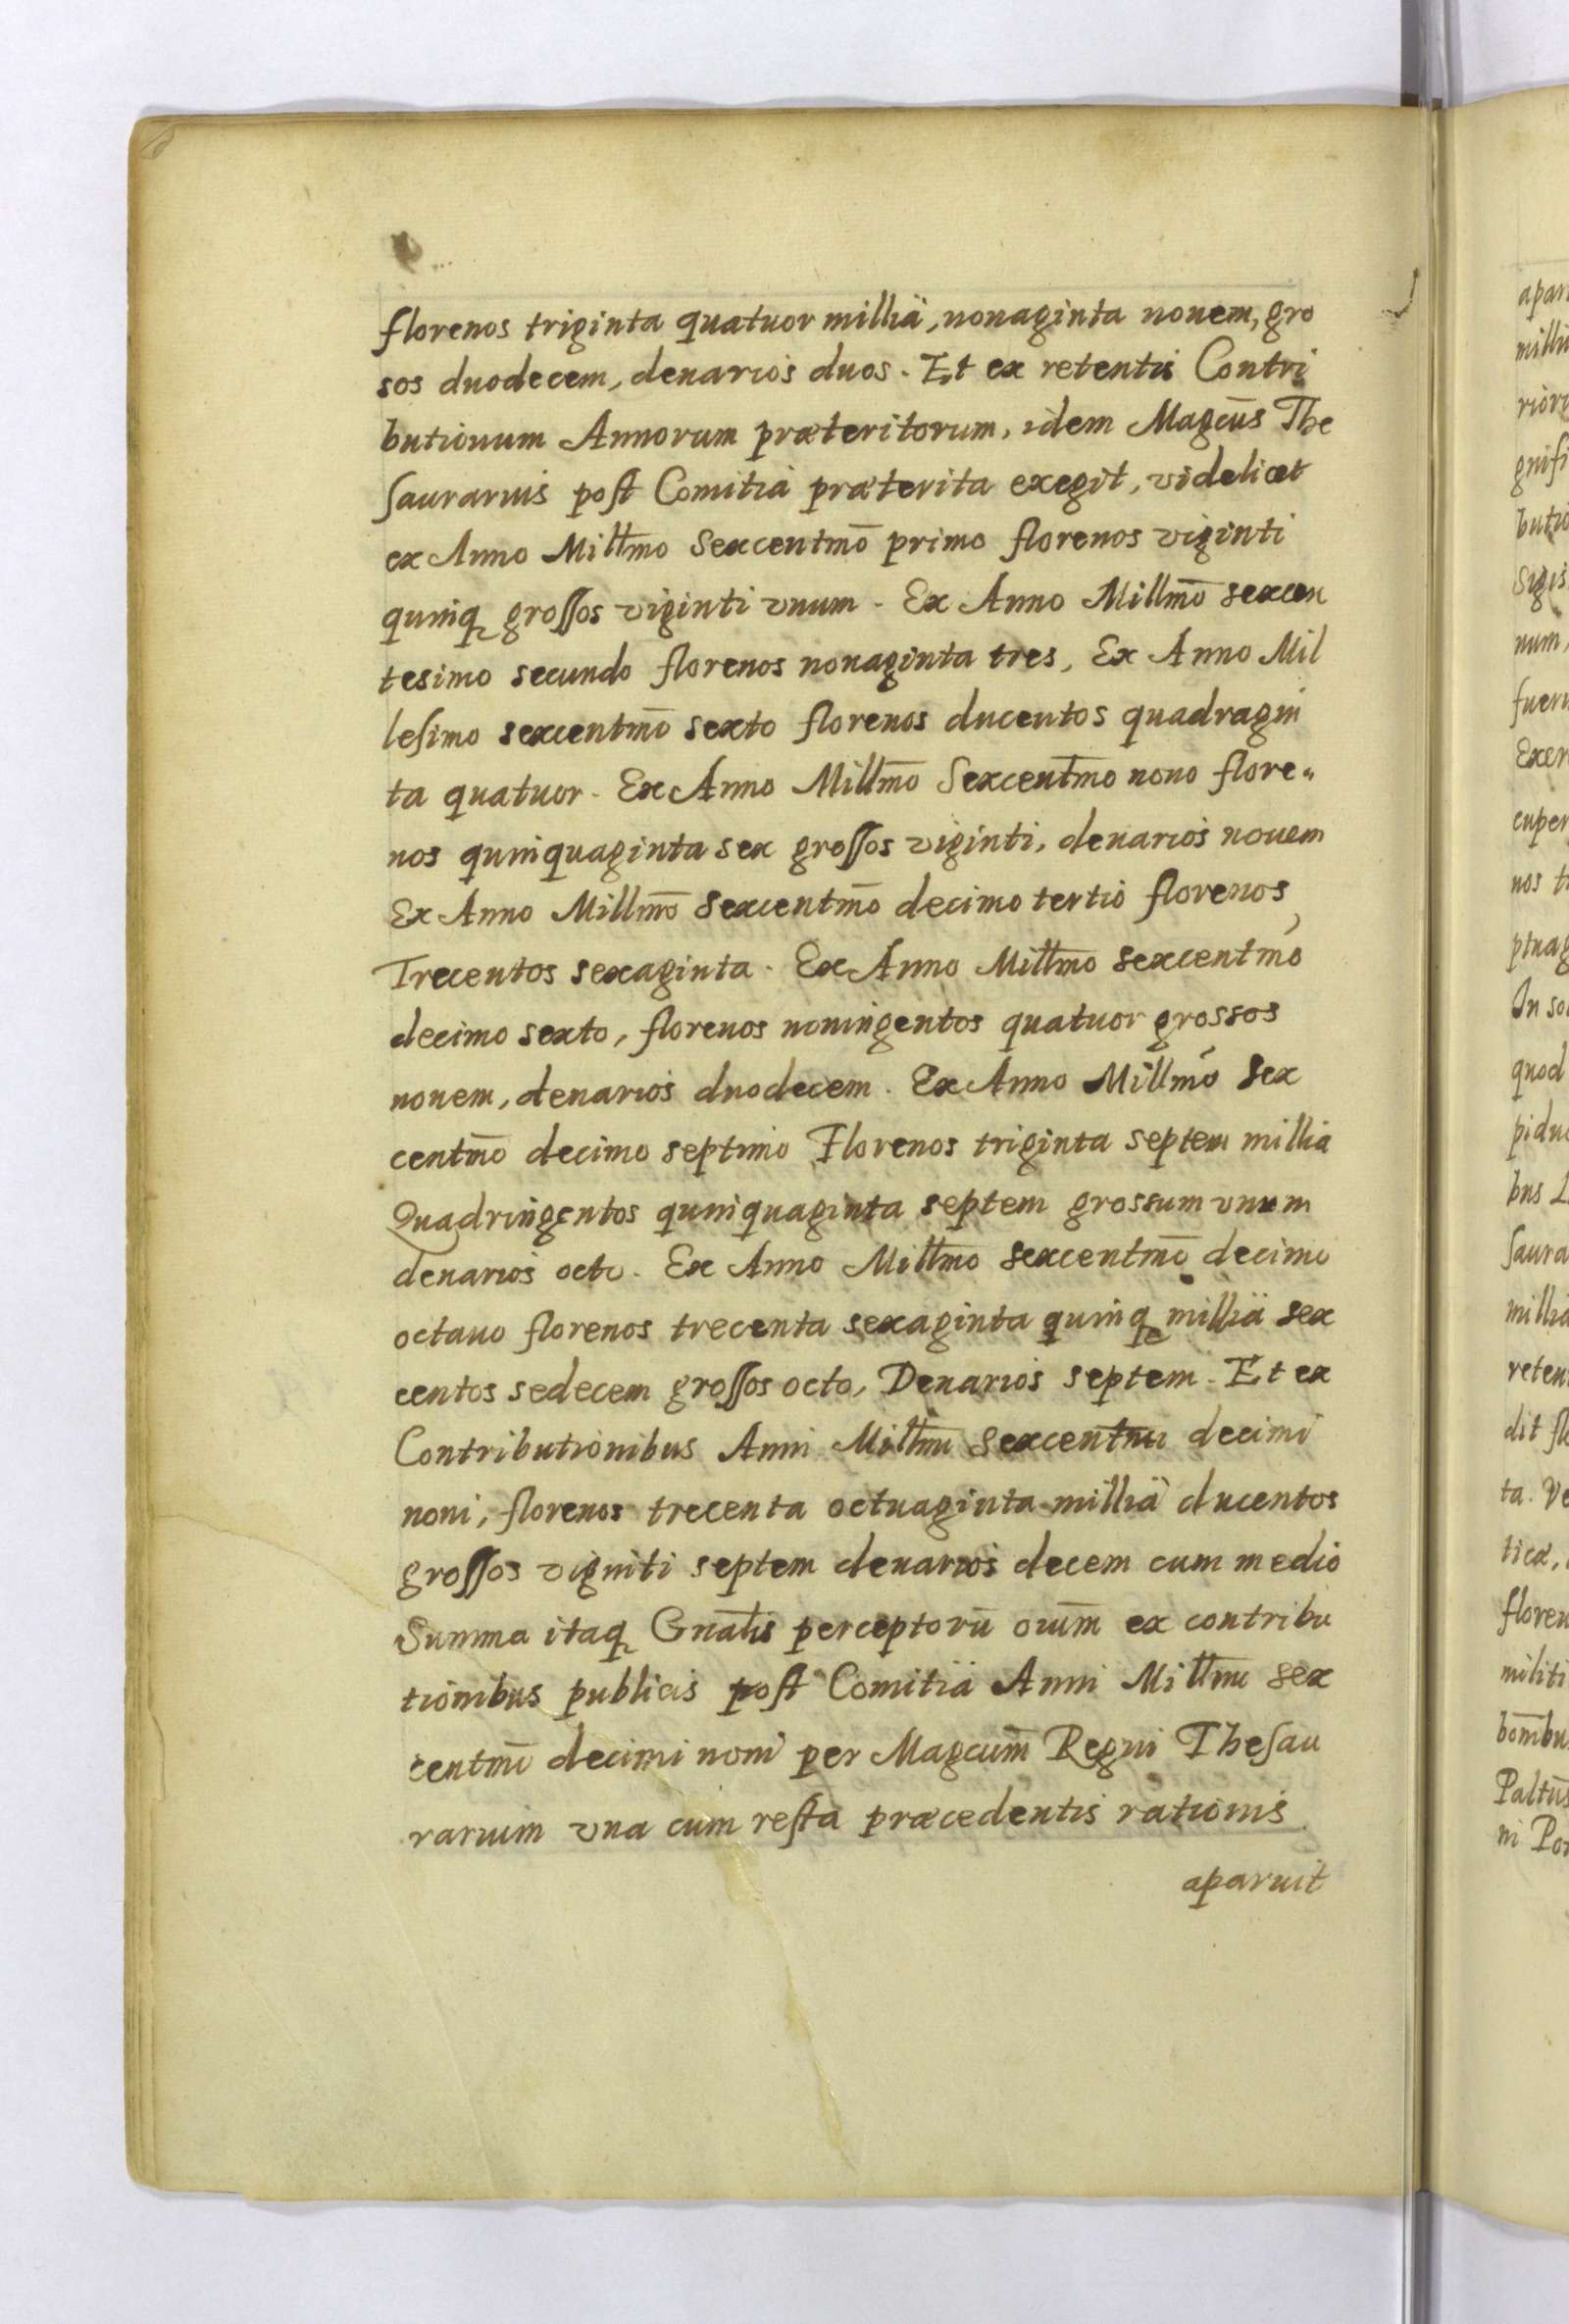 florenos triginta quatuor millia, nonaginta nouem, gro
sos duodecem, denarios duos. Et ex retentis Contri
butionum Annorum præteritorum, idem Magcūs The
saurarius post Comitia præterita exegit, videlicet
ex Anno Millmo Sexcentmō primo florenos viginti
quinq grossos viginti vnum. Ex Anno Millmō sexcen
tesimo secundo florenos nonaginta tres, Ex Anno Mil
lesimo sexcentmō sexto florenos ducentos quadragin
ta quatuor. Ex Anno Millmō Sexcentmo nono flore
nos quinquaginta sex grossos viginti, denarios nouem
Ex Anno Millmō sexcentmō decimo tertio florenos
Trecentos sexaginta. Ex Anno Millmo sexcentmō
decimo sexto, florenos noningentos quatuor grossos
nouem, denarios duodecem. Ex Anno Millmō sex
centmō decimo septimo Florenos triginta septem millia
Quadringentos quinquaginta septem grossum vnum
denarios octo. Ex Anno Millmo sexcentmō decimo
octauo florenos trecenta sexaginta quinqe millia sex
centos sedecem grossos octo, Denarios septem. Et ex
Contributionibus Anni Millmi sexcentmi decimi
noni, florenos trecenta octuaginta millia ducentos
grossos viginti septem denarios decem cum medio
Summa itaq Gnalis perceptorū oium̄ ex contribu
tionibus publicis post Comitia Anni Millmi sex
centmi decimi noni per Magcum̄ Regni Thesau
rarium vna cum resta præcedentis rationis
aparuit